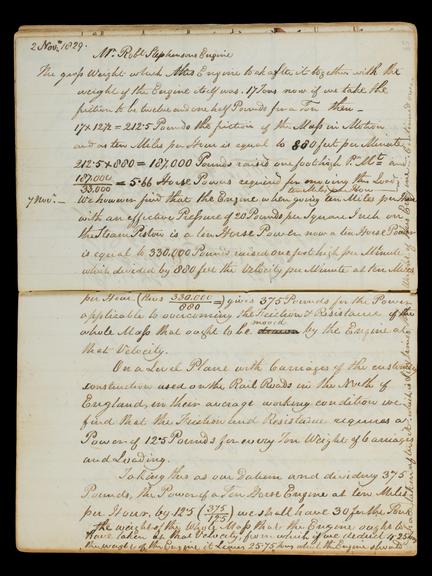 2 Novr. 1829.
Mr. Robt Stephensons Engine
The gross Weight which this Engine took after it together with the
weight of the Engine itself was 17 Tons now if we take the
friction to be twelve and one half Pounds for a Ton then -
17 x 12½ = 212.5 Pounds the friction of the Mass in Motion
and as ten Miles per Hour is equal to 880 feet per minute
212.5 x 880 = 187,000 Pounds raised one foot high Pr. Mte and
187,000/33,000 = 5.66 Horse Powers required in moving the Load
ten Miles an Hour
7 Novr. - We however find that the Engine when going ten Miles per Hour
with an effective Pressure of 20 Pounds per Square Inch on
the Steam Piston is a ten Horse Power now a ten Horse Power
is equal to 330,000 Pounds raised one foot high per Minute
which divided by 880 feet the Velocity per Minute at ten Miles
per Hour (thus 330.000/880 =) gives 375 Pounds for the Power
applicable to overcoming the Friction & Resistance of the
moved
whole Mass that ought to be drawn by the Engine at
that Velocity.
On a Level Plane with Carriages of the customary
construction used on the Rail Roads in the North of
England, in their average working condition we
find that the Friction and Resistance requires a
Power of 12.5 Pounds for every Ton Weight of Carriages
and Loading.
Taking this as our Datum and dividing 375
Pounds, the Power of a Ten Horse Engine at ten Miles
per Hour, by 12.5 (375/12.5) we shall have 30 for the Tons
the weight of the Whole Mass that the Engine ought to
have taken at that Velocity, from which if we deduct 4.25 Tons
the weight of the Engine it leaves 25.75 Tons what the Engine should